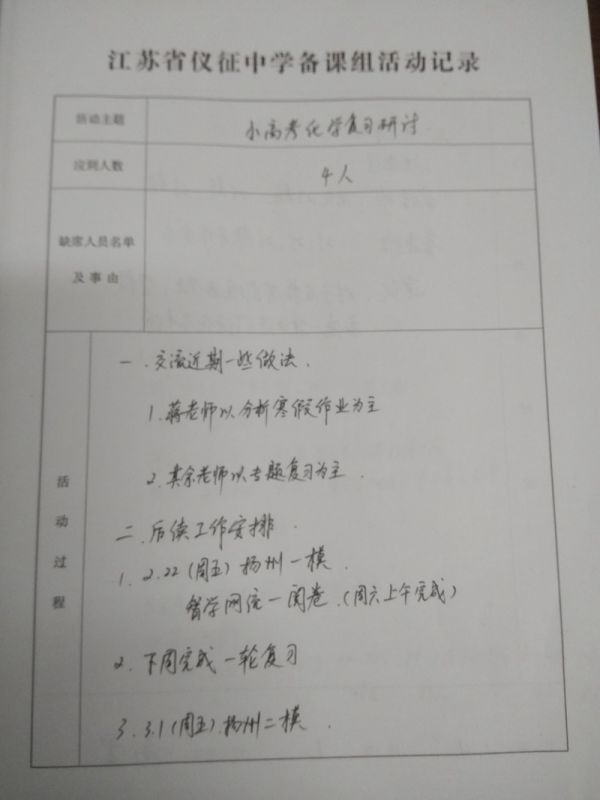 江苏省仪征中学备课组活动记录
活动主题
小高考化学复习研讨
应到人数
4人
缺席人员名单
及事由
活动过程
一.交流近期一些做法.
1.蒋老师以分析寒假作业为主
2.其余老师以专题复习为主.
二.后续工作安排.
1. 2.22(周五)扬州一模.
智学网统一阅卷.(周六上午完成)
2.下周完成一轮复习
3. 3.1(周五).扬州二模.